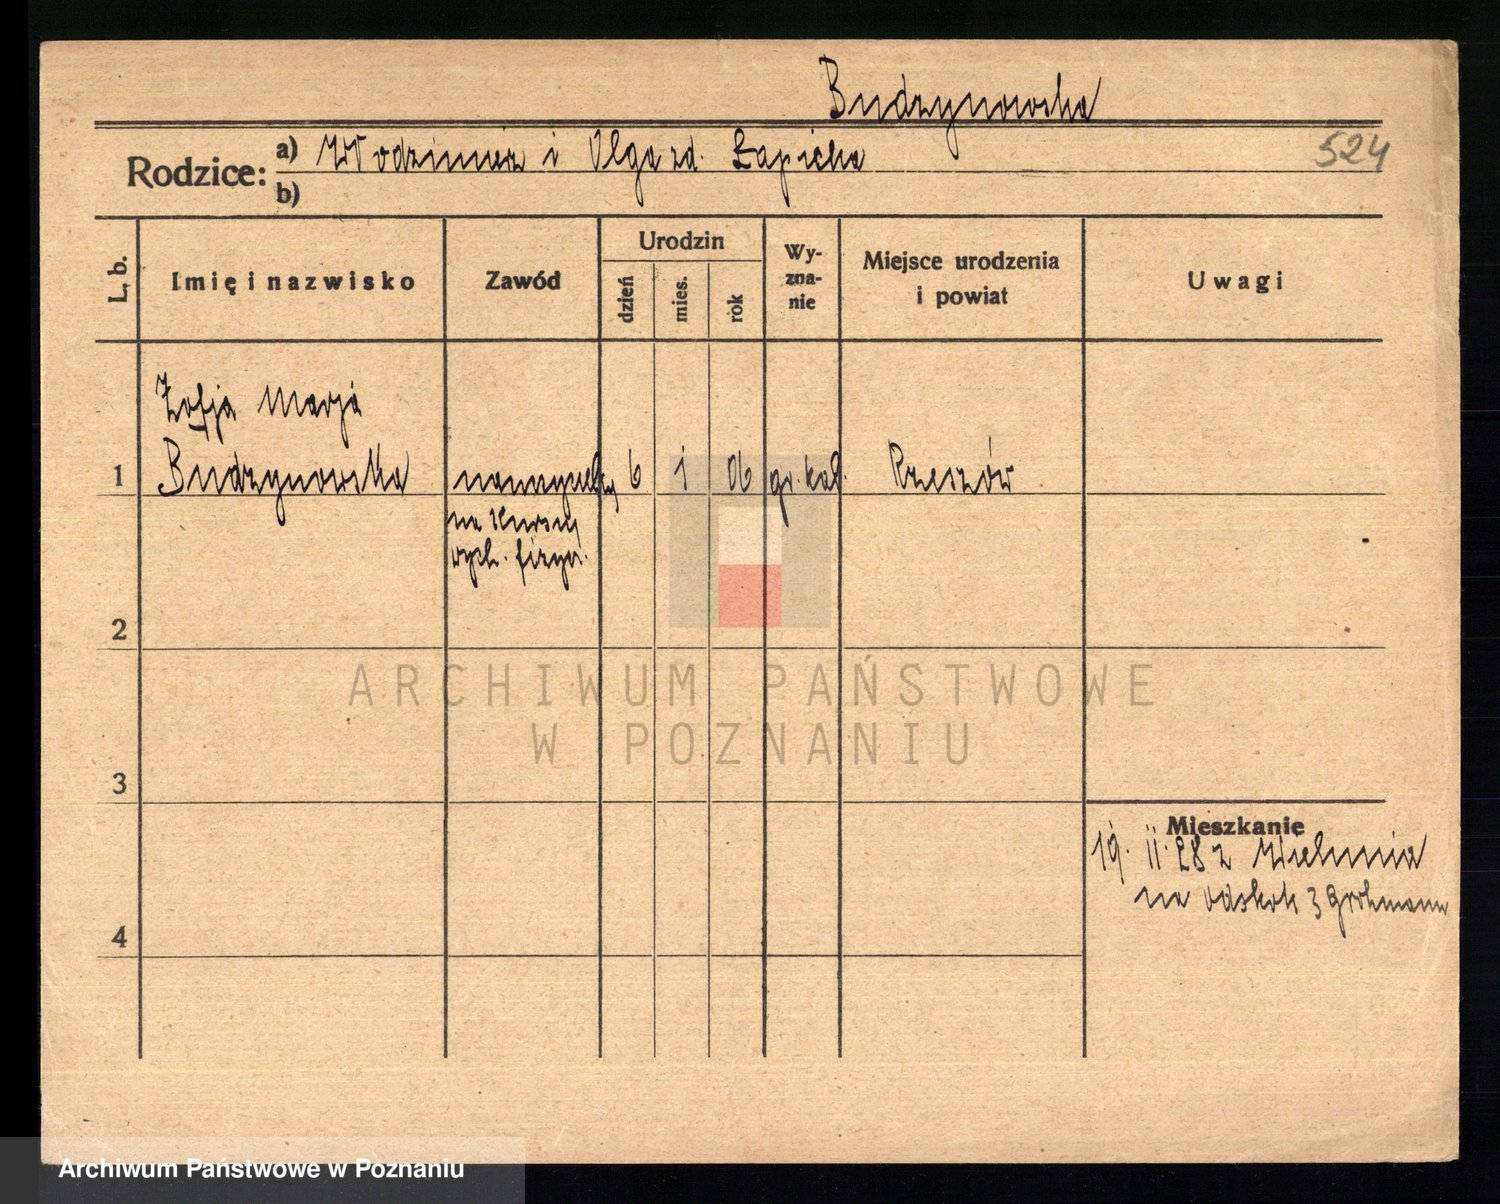 Budzynowska
524
Rodzice: a) Włodzimierz i Olga zd. Łapicka
b)
L. b.
Imię i nazwisko
Zawód
Urodzin
dzień
mies.
rok
Wy-
zna-
nie
Miejsce urodzenia
i powiat
Uwagi
Zofja Marja
1 Budzynowska
6 1 06 gr. kat. Rzeszów
na Kursy
wych. fizycz.
2
3
4
Mieszkanie
19. II. 28 z
na
3 Grohmann
ARCHIWUM PAŃSTWOWE
W POZNANIU
Archiwum Państwowe w Poznaniu